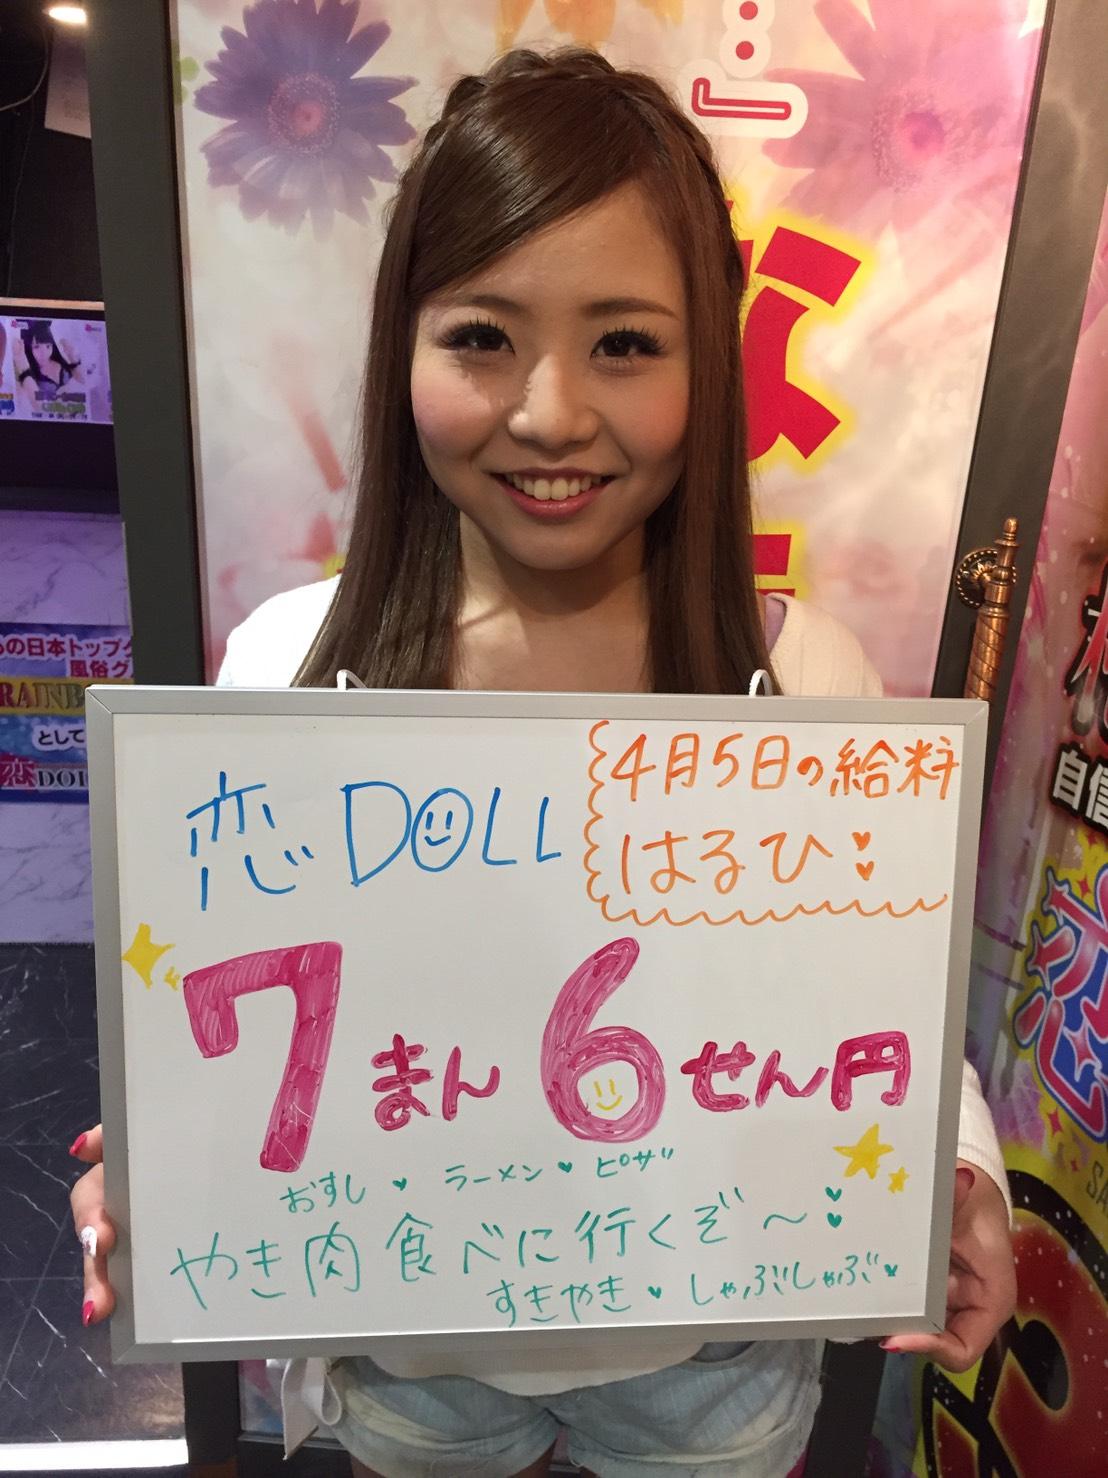 な
の日本トップク
風俗グ
RAINBO
として
恋DOL
自信
恋
恋DOLL
4月5日の給料
はるひ
7まん6せん円
おすし ラーメン ピザ
やき肉食べに行くぞ〜
すきやき しゃぶしゃぶ